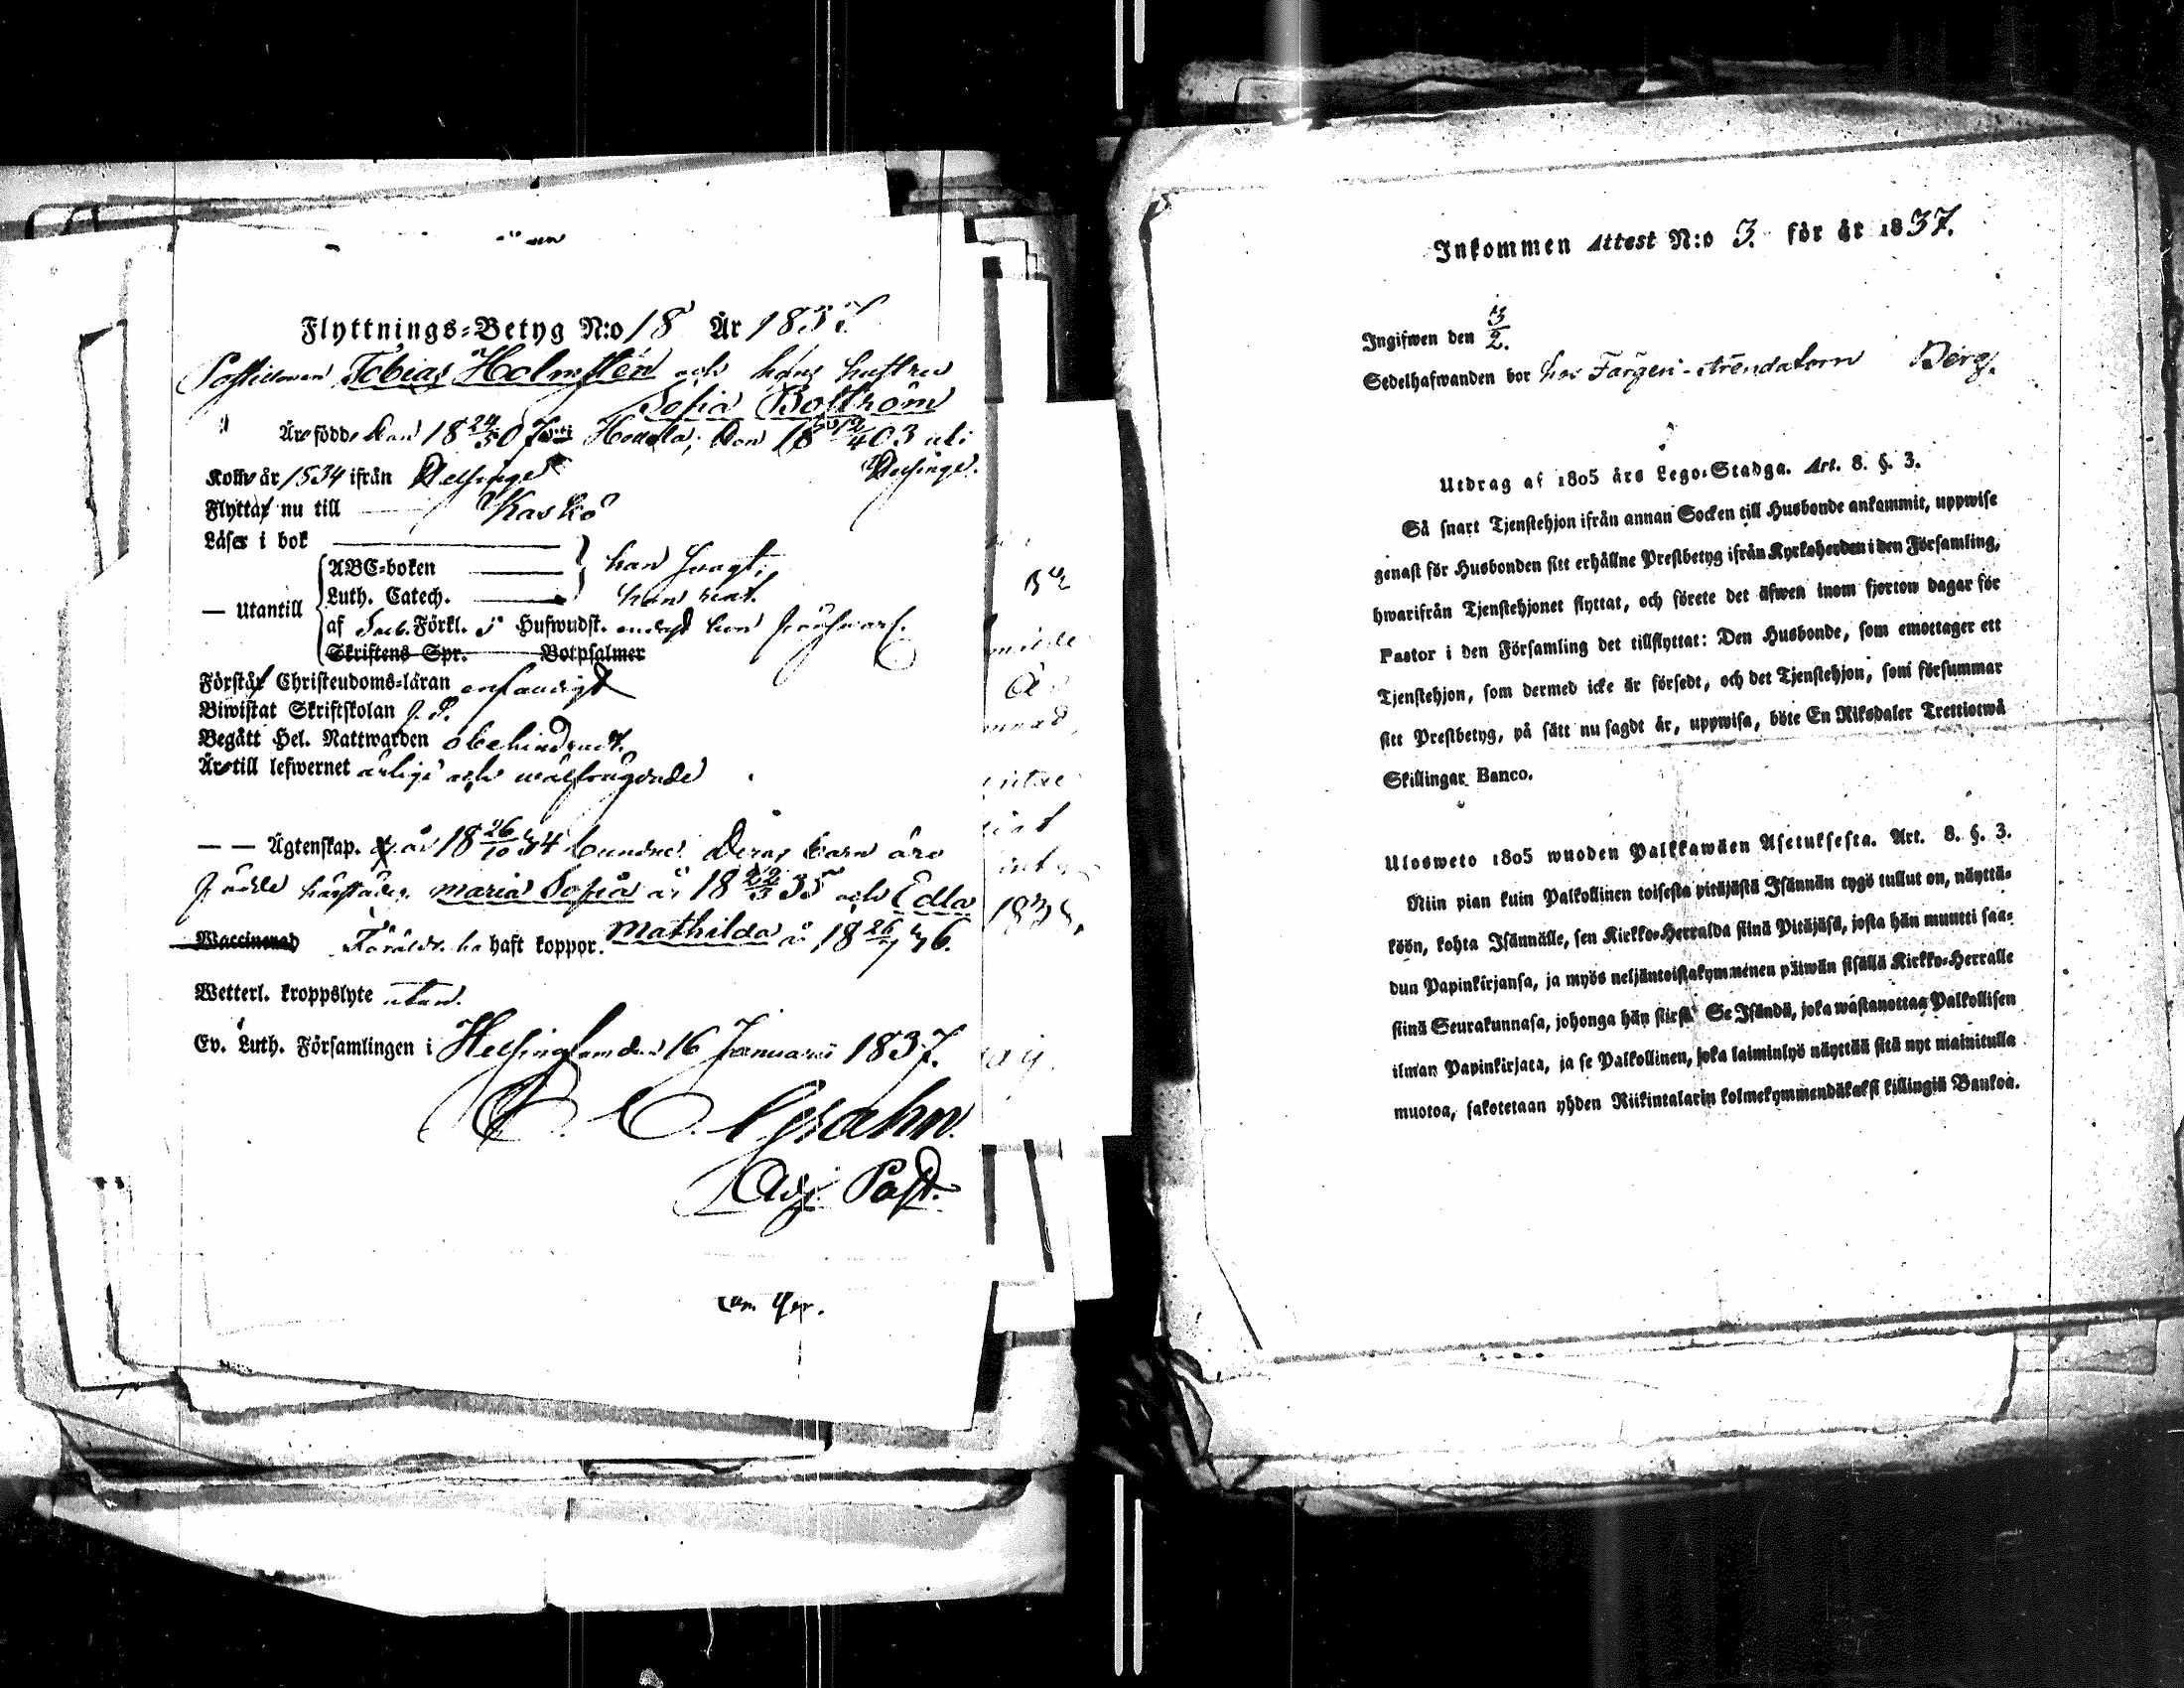 Flyttnings-Betyg N:o 18 År 1837.
Tobias Holmstén och hans hustru
Sofia Boström
Äro födde han 18 24/5 07 Hon 18 12/4 03 uti
Kom år 1834 ifrån Helsinge Helsinge.
Flyttar nu till Kaskö
Läser i bok
ABC-boken han svagt,
— Utantill Luth. Catech. hon rent.
af Förkl. 5 Hufwudst. endast hon försvarl.
Skriftens Spr. Botpsalmer
Förstår Christendoms-läran enfaldigt
Biwistat Skriftskolan
Begått Hel. Nattwarden obehindradt.
Äro till lefwernet ärlige och wälfrägdade
— — Ägtenskap. år 18 26/10 34 bundne. Deras barn äro
födde härstädes Maria Sofia år 18 22/3 35 och Edla
Waccinerad Föräldr. ha haft koppor. Mathilda år 18 26/7 36.
Wetterl. kroppslyte utan.
Ev. Luth. Församlingen i Helsingfors den 16 Januarii 1837.
Grahn.
Adj. Past.
Inkommen Attest N:o 3. för år 1837.
Ingifwen den 3/2.
Sedelhafwanden bor hos Färgeri-Arendatorn Berg.
Utdrag af 1805 års Lego-Stadga. Art. 8. §. 3.
Så snart Tjenstehjon ifrån annan Socken till Husbonde ankommit, uppwise
genast för Husbonden sitt erhållne Prestbetyg ifrån Kyrkoherden i den Församling,
hwarifrån Tjenstehjonet flyttat, och förete det äfwen inom fjorton dagar för
Pastor i den Församling det tillflyttat: Den Husbonde, som emottager ett
Tjenstehjon, som dermed icke är försedt, och det Tjenstehjon, som försummar
sitt Prestbetyg, på sätt nu sagdt är, uppwisa, böte En Riksdaler Trettiotwå
Skillingar Banco.
Ulosweto 1805 wuoden Palkkawäen Asetuksesta. Art. 8. §. 3.
Niin pian kuin Palkollinen toisesta pitäjästä Isännän tygö tullut on, näyttä-
köön, kohta Isännälle, sen Kirkko-Herralda siinä Pitäjäsä, josta hän muutti saa-
dun Papinkirjansa, ja myös neljäntoistakymmenen päiwän sisällä Kirkko-Herralle
siinä Seurakunnasa, johonga hän siirsä: Se Isändä, joka wastanottaa Palkollisen
ilman Papinkirjata, ja se Palkollinen, joka laiminlyö näyttää sitä nyt mainitulla
muotoa, sakotetaan yhden Riikintalarin kolmekymmendäkaksi killingiä Bankoa.